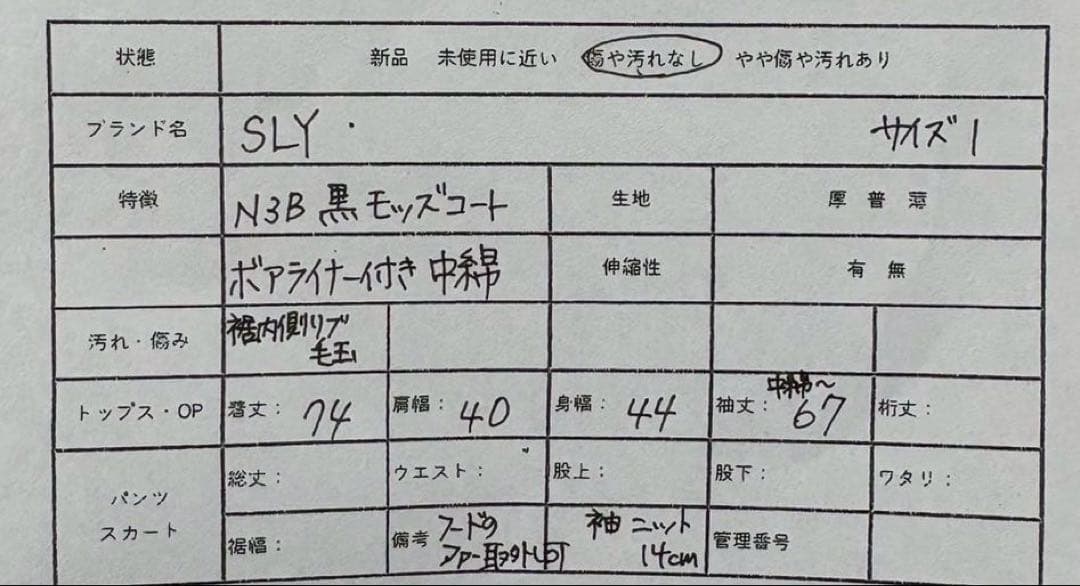 状態 新品 未使用に近い 傷や汚れなし やや傷や汚れあり
ブランド名 SLY サイズ1
特徴 N3B 黒 モッズコート 生地 厚 普 薄
ボアライナー付き 中綿 伸縮性 有 無
汚れ・傷み 裾内側リブ
毛玉
中綿〜
トップス・OP 着丈: 74 肩幅: 40 身幅: 44 袖丈: 67 裄丈:
パンツ
スカート
総丈: ウエスト: 股上: 股下: ワタリ:
裾幅: 備考 フードの 袖 ニット 管理番号
ファー取り外し可 14cm